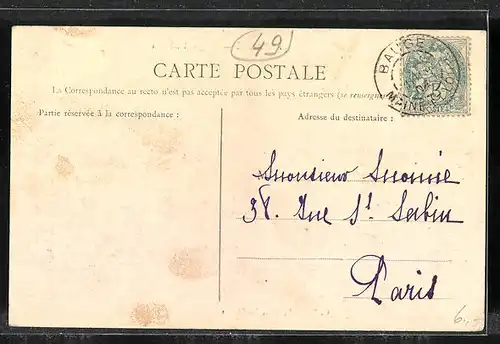 49
CARTE POSTALE
La Correspondance au recto n'est pas acceptée par tous les pays étrangers (se renseigner
Partie réservée à la correspondance :
Adresse du destinataire :
BAUGÉ
MAINE
Monsieur
38. Rue St. Sabin
Paris
6.-